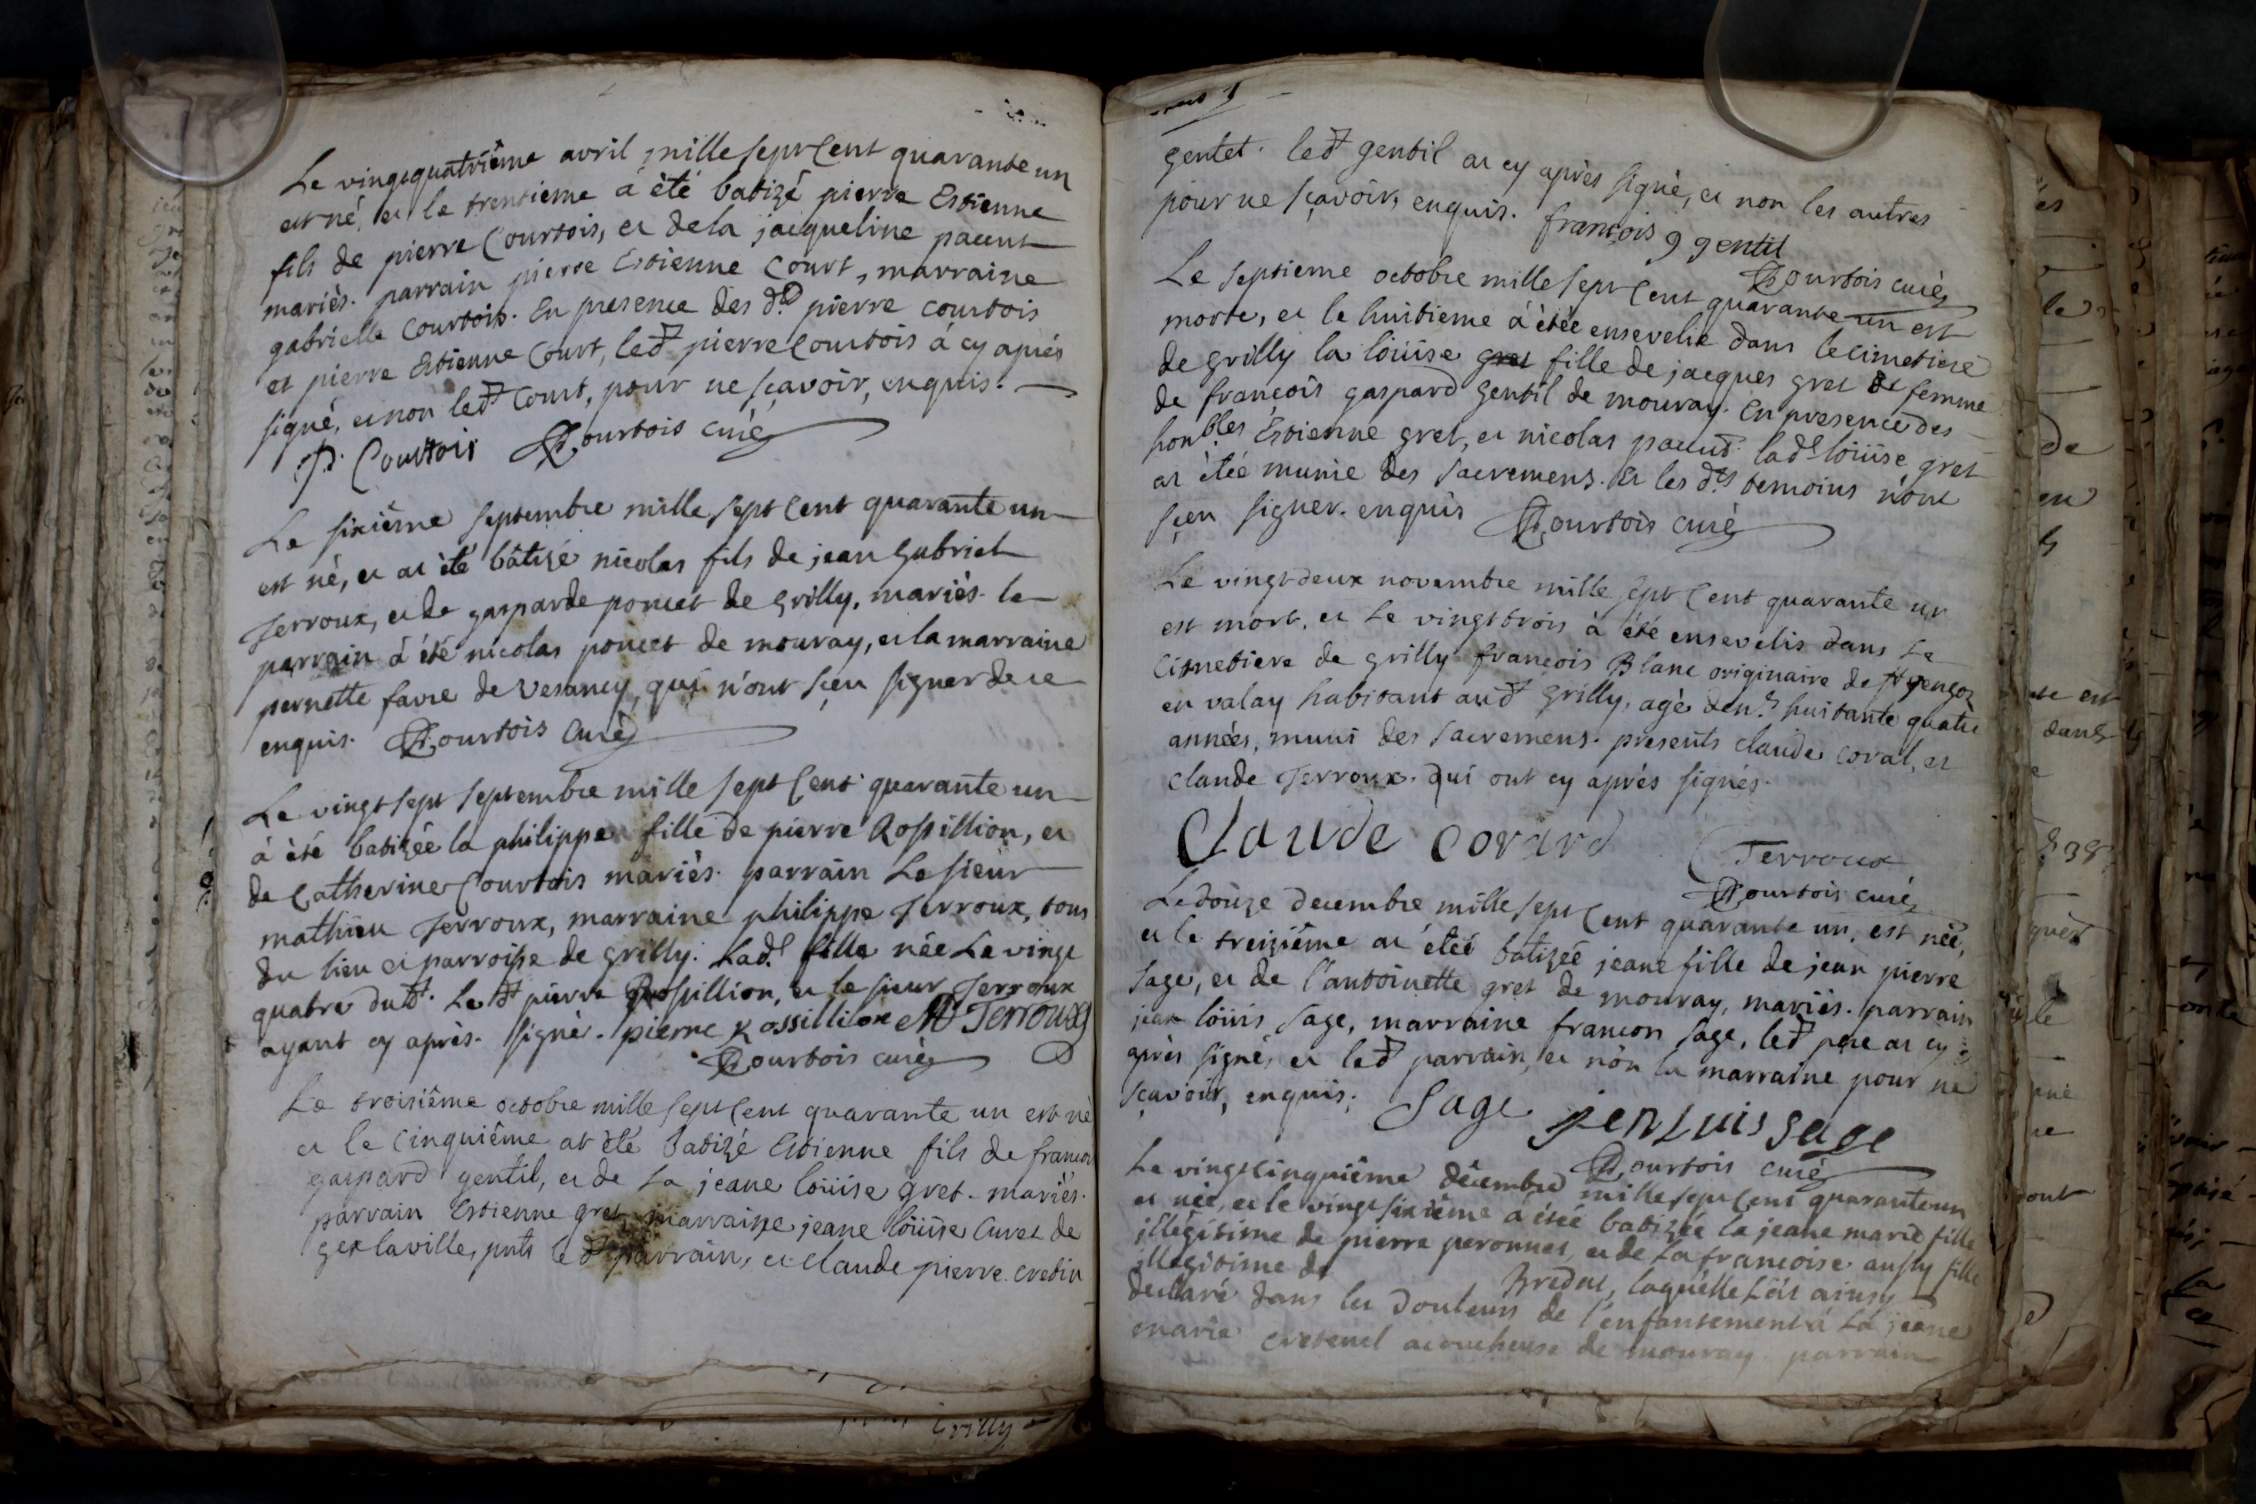 Le vingtquatriême avril mille sept Cent quarante un
est né, et le trentieme à été batizé pierre Estienne
fils de pierre Courtois, et de la jacqueline pacent
mariès. parrain pierre Estienne Court, marraine
gabrielle Courtois. En presence des d.ts pierre courtois
et pierre Estienne Court, led.t pierre Courtois à cy après
signé, et non led.t Court, pour ne sçavoir, enquis.
P. Courtois Courtois curé
Le sixiême septembre mille sept Cent quarante un
est né, et at été bâtizé nicolas fils de jean gabriel
Terroux, et de gasparde poncet de grilly, mariès. le
parrain à été nicolas poncet de mouray, et la marraine
pernette favre de Vesancy, qui n'ont sçeu signer de ce
enquis. Courtois Curé
Le vingt sept septembre mille sept Cent quarante un
à été batizée la philippe fille de pierre Rossillion, et
de Catherine Courtois mariès. parrain Le sieur
mathieu Terroux, marraine philippe Terroux, tous
du lieu et parroisse de grilly. Lad.te fille née Le vingt
quatre dud.t. Led.t pierre Rossillion, et le sieur Terroux
ayant cy après. signé. pierre Rossillion M Terroux
Courtois curé
Le troisiême octobre mille sept Cent quarante un est né
et le Cinquiême at èté batizé Estienne fils de francois
gaspard gentil, et de La jeane loüise gret. mariès.
parrain Estienne gret, marraine jeane loüise Curet de
gex la ville, pnts led.t parrain, et claude pierre cretin
grilly
gentet. led.t gentil at cy après signè, et non les autres
pour ne sçavoir, enquis. francois g gentil
Courtois curé
Le septieme octobre mille sept Cent quarante un est
morte, et le huitieme à étée ensevelie dans le cimetiere
de grilly la loüise gret fille de jacques gret et femme
de francois gaspard gentil de mouray. En presence des
honbles Estienne gret, et nicolas pacent. lad.te loüise gret
at étée munie des sacremens. et les d.ts temoins n'ont
sçeu signer. enquis Courtois curé
Le vingt deux novembre mille sept Cent quarante un
est mort, et Le vingt trois à été ensevelis dans Le
Cimetiere de grilly francois Blanc originaire de st gengoz
en valay habitant aud.t grilly, agè d'en.n huitante quatre
années, muni des sacremens. presents claude coral, et
claude Terroux. qui ont cy après signés.
Claude corard Terroux
Courtois curé
Le douze decembre mille sept Cent quarante un, est née,
et le treiziême at étée batizée jeane fille de jean pierre
Sage, et de l'antoinette gret de mouray, mariès. parrain
jean loüis Sage, marraine francon Sage, led.t pere at cy
après signé, et led.t parrain, et non la marraine pour ne
sçavoir, enquis; Sage jen Luis sage
Courtois curé
Le vingt cinquiême décembre mille sept Cent quarante un
et née, et le vingt sixiême à étée batizée la jeane marie fille
illegitime de pierre peronnet, et de La francoise aussy fille
illegitime de Bredut, laquelle L'at ainsy
declaré dans les Douleurs de l'enfantement à La jeane
marie cretenel acoucheuse de mouray parrain